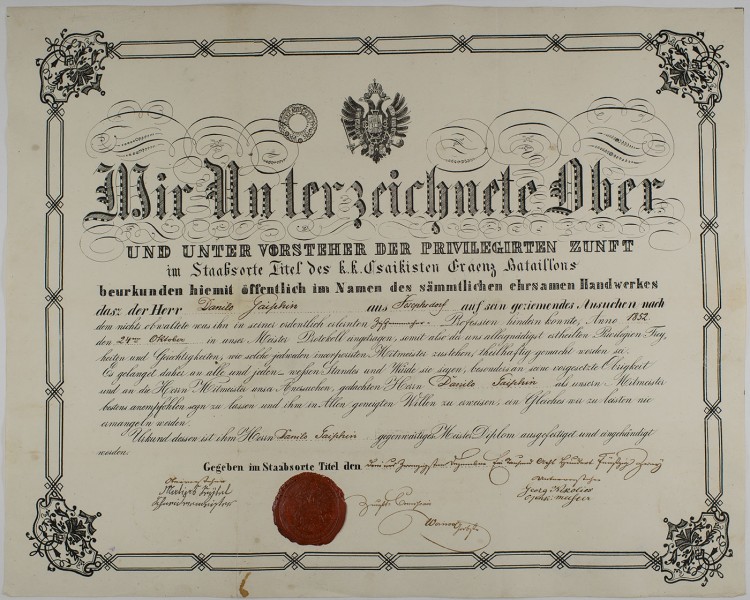 Wir Unterzeichnete Ober
UND UNTER VORSTEHER DER PRIVILEGIRTEN ZUNFT
im Staabsorte Titel des k.k. Csaikisten Graenz Bataillons
beurkunden hiemit öffentlich im Namen des sämmtlichen ehrsamen Handwerkes
dasz der Herr Danilo aus Josephsdorf auf sein geziemendes Ansuchen nach
dem nichts obwaltete was ihn in seiner ordentlich erlernten Profession hindern konnte, Anno 1852
den 24ten Oktober in unser Meister Protokoll eingetragen, somit aber der uns allergnädigst ertheilten Privilegien Frey
heiten und Gerechtigkeiten, wie solche jedweden incorporirten Mitmeister zustehen, theilhaftig gemacht worden sei.
Es gelanget daher an alle und jeden wessen Standes und Würde sie seyen, besonders an seine vorgesetzte Obrigkeit
und an die Herrn Mitmeister unser Ansuchen, gedachten Herrn Danilo als unsern Mitmeister
bestens anempfohlen seyn zu lassen und ihm in Allem geneigten Willen zu erweisen, ein Gleiches wir zu leisten nie
ermangeln werden.
Urkund dessen ist ihm Herrn Danilo gegenwärtiges Meister Diplom ausgefertiget und eingehändigt
worden.
Gegeben im Staabsorte Titel den
Georg Nikolics